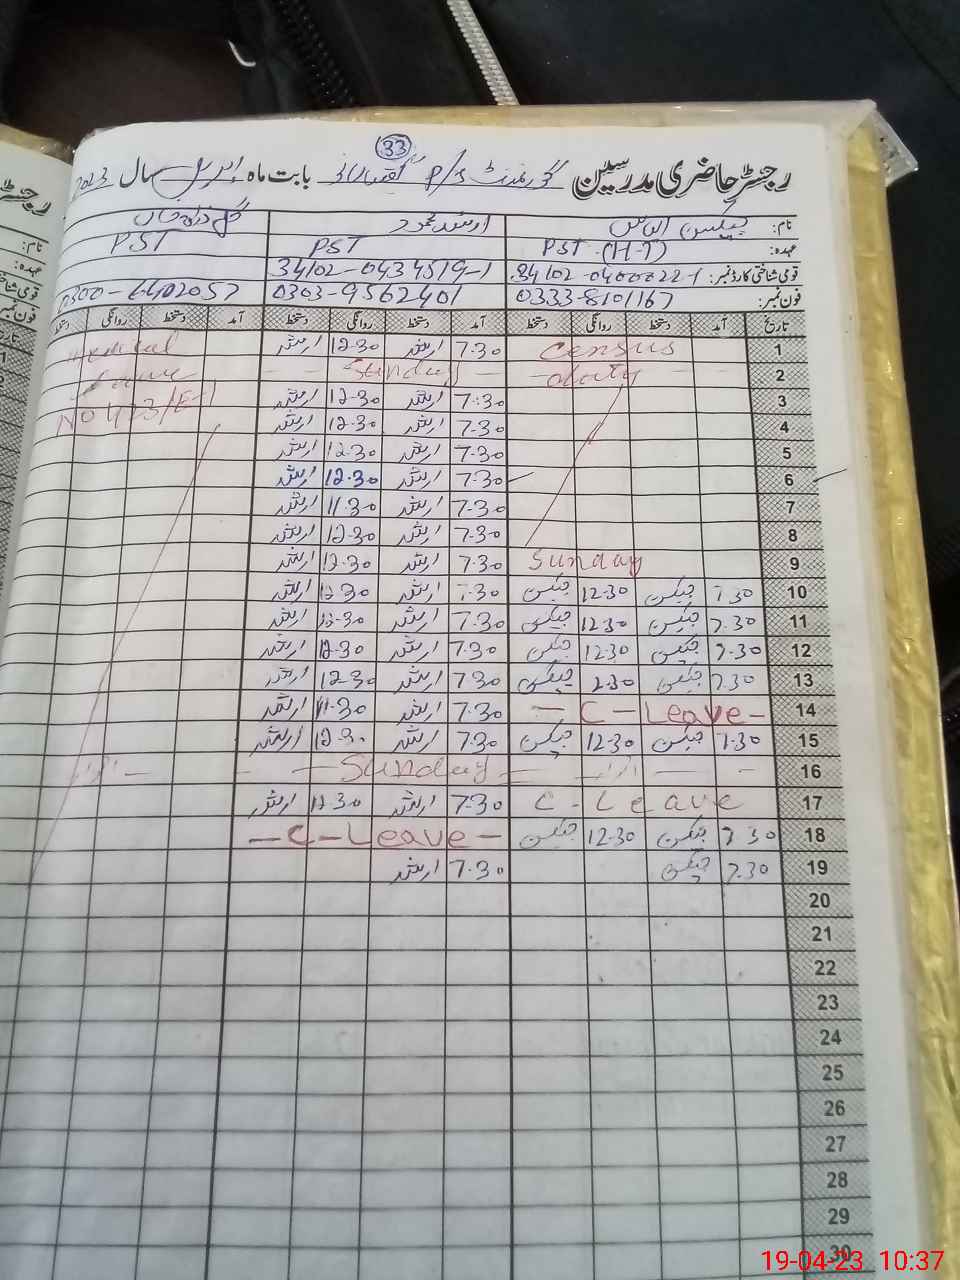 33
رجسٹر حاضری مدرسین گورنمنٹ P/S بابت ماہ اپریل سال 2023
نام: جیکسن الماس ارشد محمود
عہدہ: PST (H-T) PST PST
قومی شناختی کارڈ نمبر: 34102-0400022-1 34102-0434519-1
فون نمبر: 0333-8101167 0303-9562401 0300-6402057
تاریخ آمد دستخط روانگی دستخط آمد دستخط روانگی دستخط آمد دستخط روانگی دستخط
1 Census 7.30 ارشد 12.30 ارشد Medical
2 duty Sunday Leave
3 7.30 ارشد 12.30 ارشد No 423/E-1
4 7.30 ارشد 12.30 ارشد
5 7.30 ارشد 12.30 ارشد
6 7.30 ارشد 12.30 ارشد
7 7.30 ارشد 11.30 ارشد
8 7.30 ارشد 12.30 ارشد
9 Sunday 7.30 ارشد 12.30 ارشد
10 7.30 جیکسن 12.30 جیکسن 7.30 ارشد 12.30 ارشد
11 7.30 جیکسن 12.30 جیکسن 7.30 ارشد 12.30 ارشد
12 7.30 جیکسن 12.30 جیکسن 7.30 ارشد 12.30 ارشد
13 7.30 جیکسن 12.30 جیکسن 7.30 ارشد 12.30 ارشد
14 - C - Leave - 7.30 ارشد 11.30 ارشد
15 7.30 جیکسن 12.30 جیکسن 7.30 ارشد 12.30 ارشد
16 اتوار Sunday اتوار
17 C - Leave 7.30 ارشد 12.30 ارشد
18 7.30 جیکسن 12.30 جیکسن - C - Leave -
19 7.30 جیکسن 7.30 ارشد
20
21
22
23
24
25
26
27
28
29
30
19-04-23 10:37